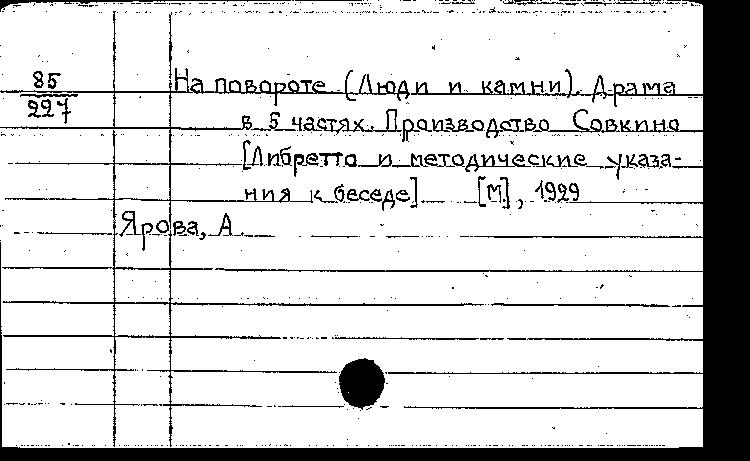 85
227
На повороте (Люди и камни). Драма
в 5 частях. Производство Совкино
[Либретто и методические указа-
ния к беседе] [М], 1929
Ярова, А.